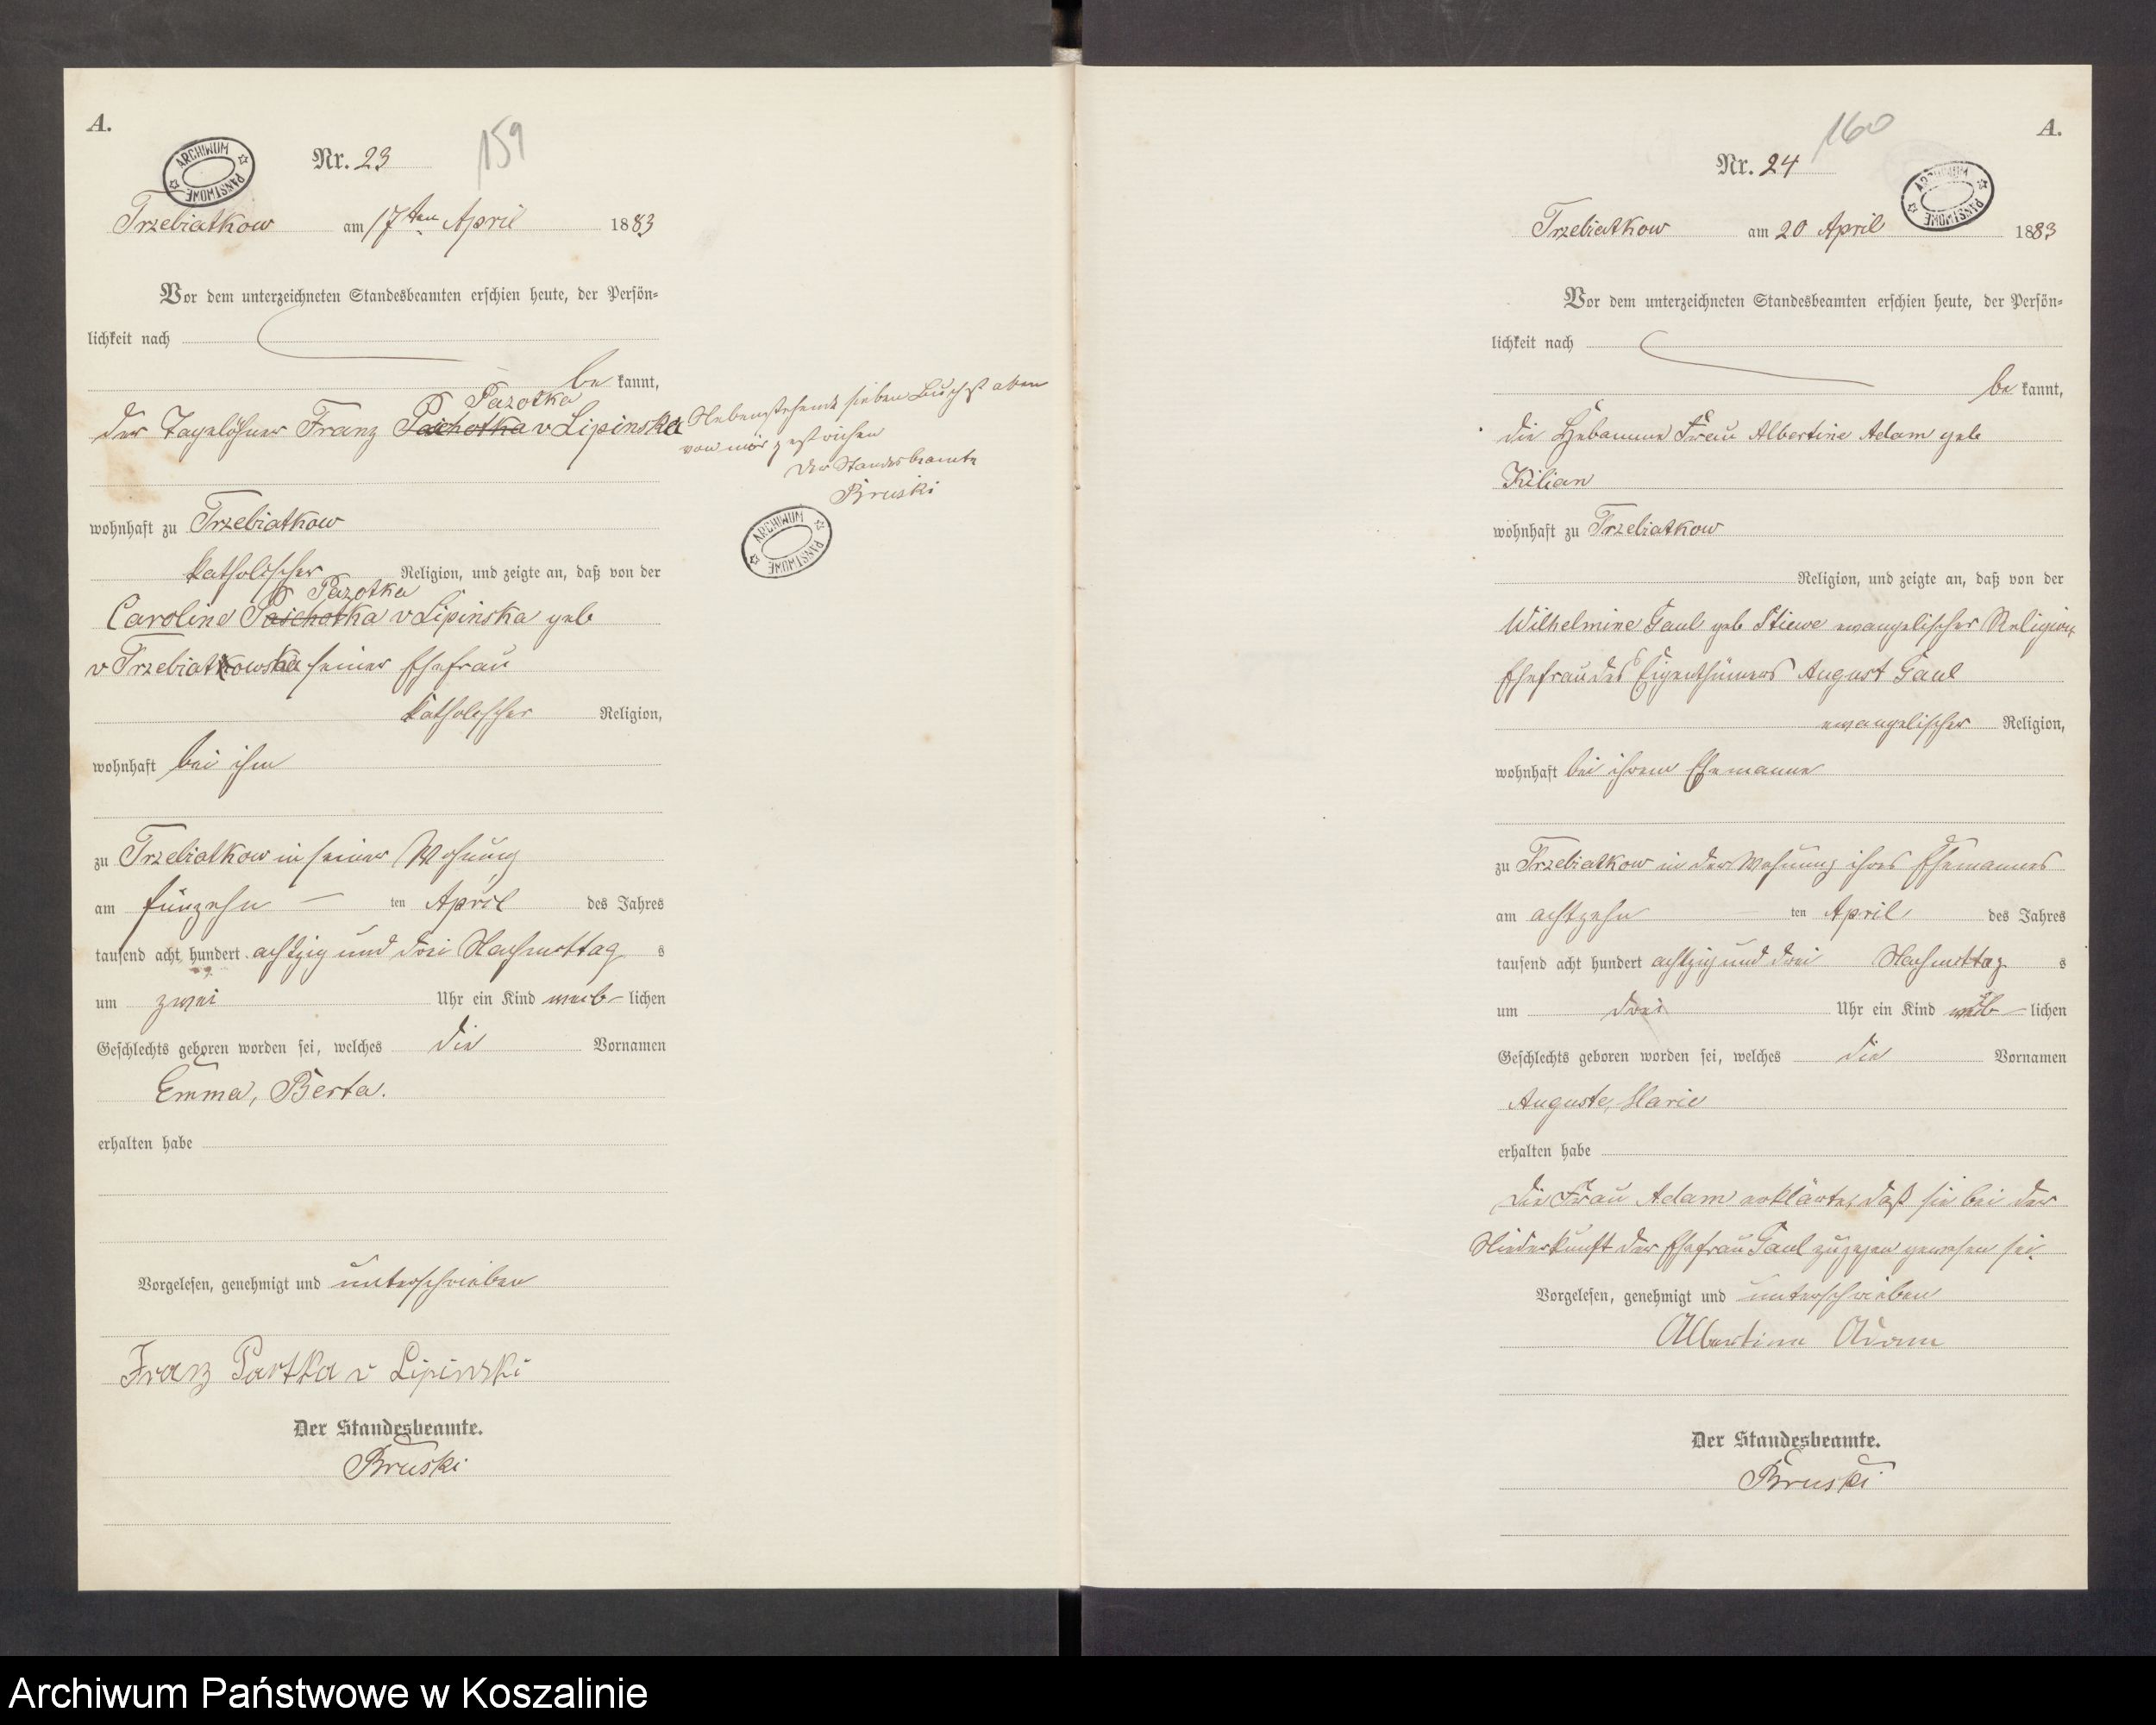 A.
159
ARCHIWUM PAŃSTWOWE
Nr. 23
Trzebiatkow am 17ten April 1883
Vor dem unterzeichneten Standesbeamten erschien heute, der Persön-
lichkeit nach
be kannt,
Pazotka
der Tagelöhner Franz Paschotka v Lipinska
wohnhaft zu Trzebiatkow
katholischer Religion, und zeigte an, daß von der
Pazotka
Caroline Paschotka v Lipinska geb
v Trzebiatkowska seiner Ehefrau
katholischer Religion,
wohnhaft bei ihm
zu Trzebiatkow in seiner Wohnung
am fünzehn ten April des Jahres
tausend acht hundert achtzig und drei Nachmittag s
um zwei Uhr ein Kind weib- lichen
Geschlechts geboren worden sei, welches die Vornamen
Emma, Berta.
erhalten habe
Vorgelesen, genehmigt und unterschrieben
Franz v Lipinski
Der Standesbeamte.
Bruski
Nebenstehende sieben Buchstaben
von mir gestrichen
Der Standesbeamte
Bruski
ARCHIWUM PAŃSTWOWE
160
A.
Nr. 24
ARCHIWUM PAŃSTWOWE
Trzebiatkow am 20 April 1883
Vor dem unterzeichneten Standesbeamten erschien heute, der Persön-
lichkeit nach
be kannt,
die Hebamme Frau Albertine Adam geb
Kilian
wohnhaft zu Trzebiatkow
Religion, und zeigte an, daß von der
Wilhelmine Gaul geb Stiewe evangelischer Religion
Ehefrau des Eigenthümers August Gaul
evangelischer Religion,
wohnhaft bei ihrem Ehemanne
zu Trzebiatkow in der Wohnung ihres Ehemannes
am achtzehn ten April des Jahres
tausend acht hundert achtzig und drei Nachmittag s
um drei Uhr ein Kind weib- lichen
Geschlechts geboren worden sei, welches die Vornamen
Auguste, Marie
erhalten habe
Die Frau Adam erklärte, daß sie bei der
Niederkunft der Ehefrau Gaul zugegen gewesen sei.
Vorgelesen, genehmigt und unterschrieben
Albertine Adam
Der Standesbeamte.
Bruski
Archiwum Państwowe w Koszalinie